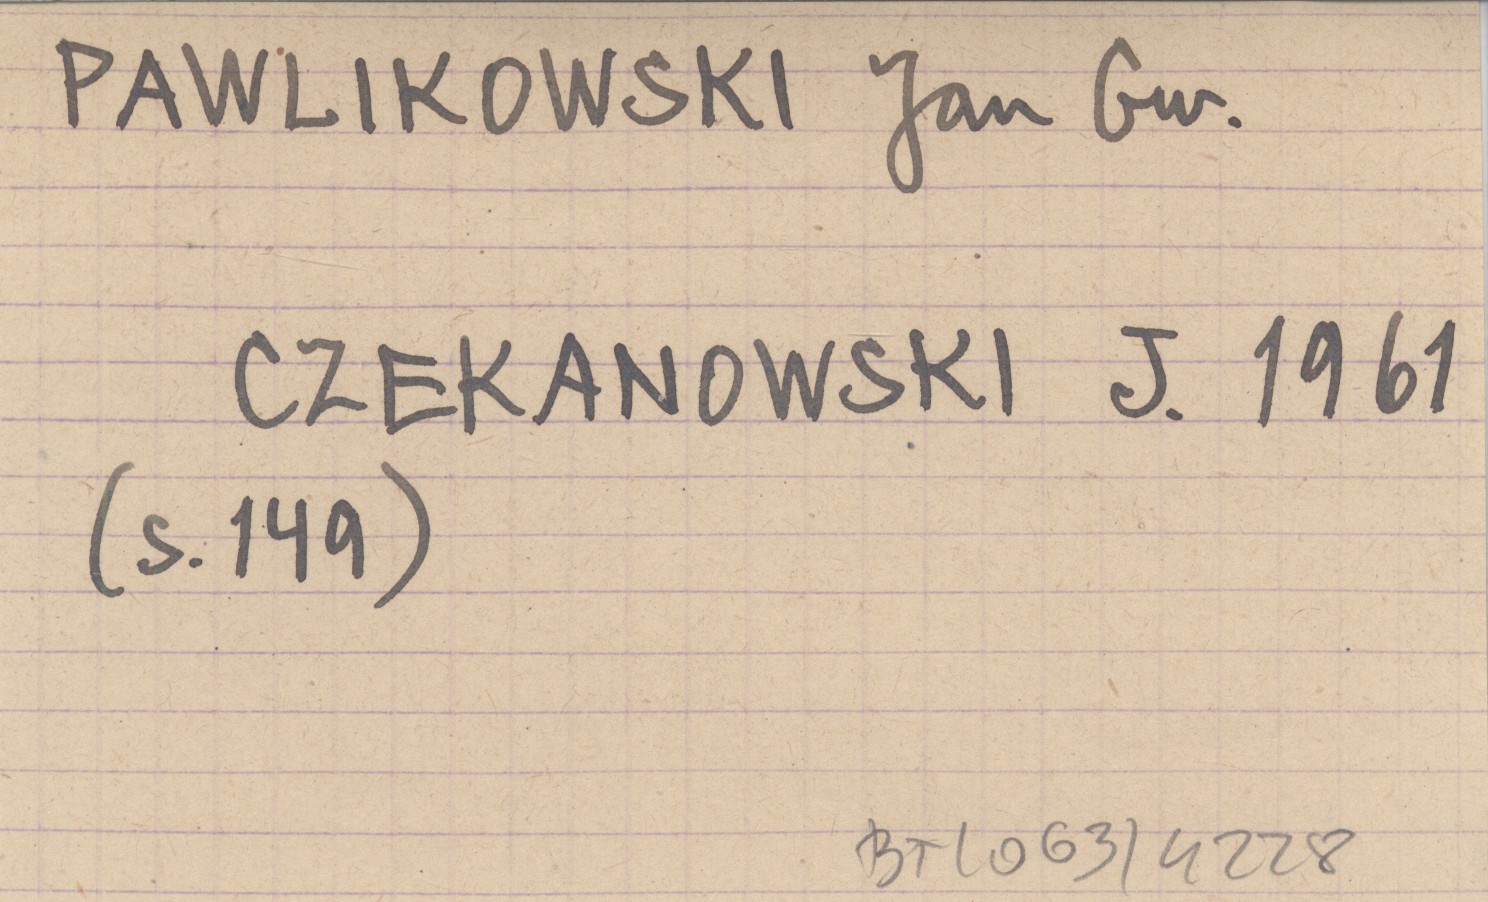 PAWLIKOWSKI Jan Gw.
CZEKANOWSKI J. 1961
(s.149)
BT(063)4228